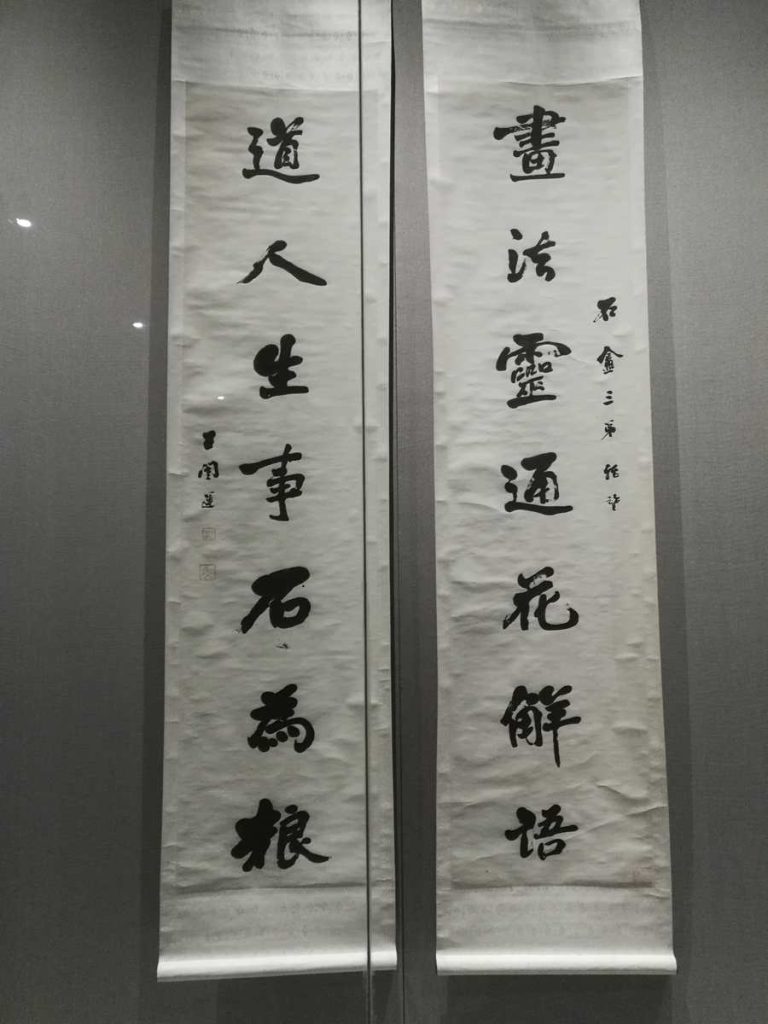 畫法靈通花解語
石 三弟雅
道人生事石為粮
王闓運